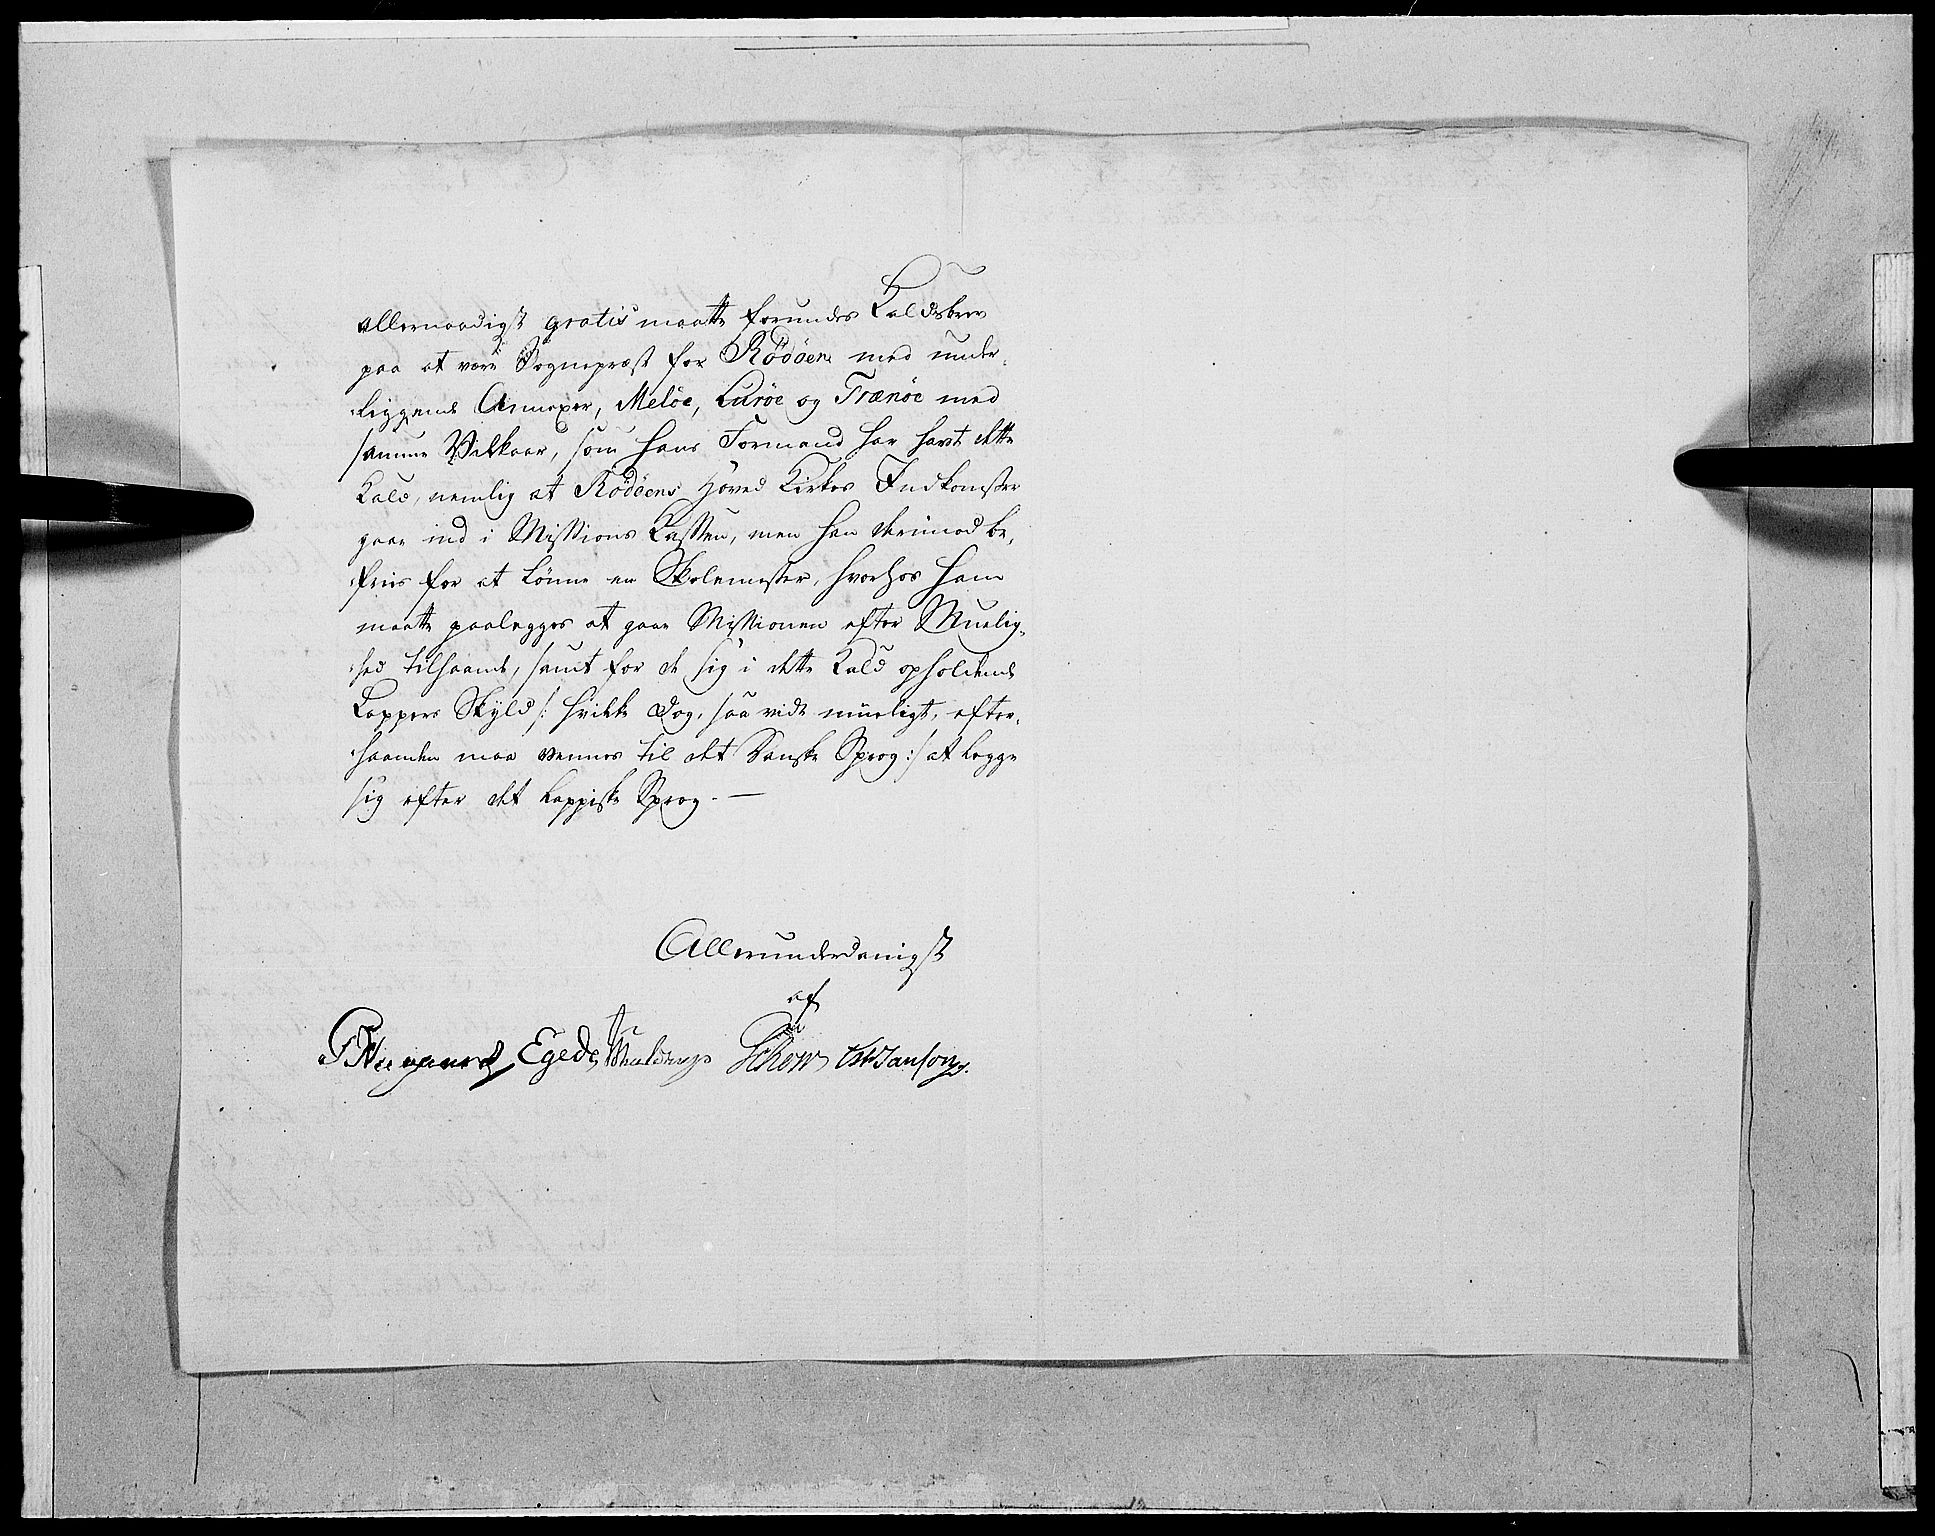 allernaadigst gratis maatte forundes Kaldsbrev
paa at være Sognepræst for Rödöen med under,
liggende Annexer, Melöe, Luröe og Trænöe med
samme Vilkaar, som hans Formand har havt dette
Kald, nemlig at Rödöens Hoved Kirkes Indkomster
gaae ind i Missions Cassen, men han derimod be,
fries for at lönne en Skolemester, hvorhos ham
maatte paalegges at gaae Missionen efter Muelig,
hed tilhaande, samt for de sig i dette Kald opholdende
Lappers Skyld /: hvilke dog, saa vidt mueligt, efter,
haanden maa vennes til det Danske Sprog :/ at legge
sig efter det Lappiske Sprog. —
Allerunderdanigst
af
Egede Schow